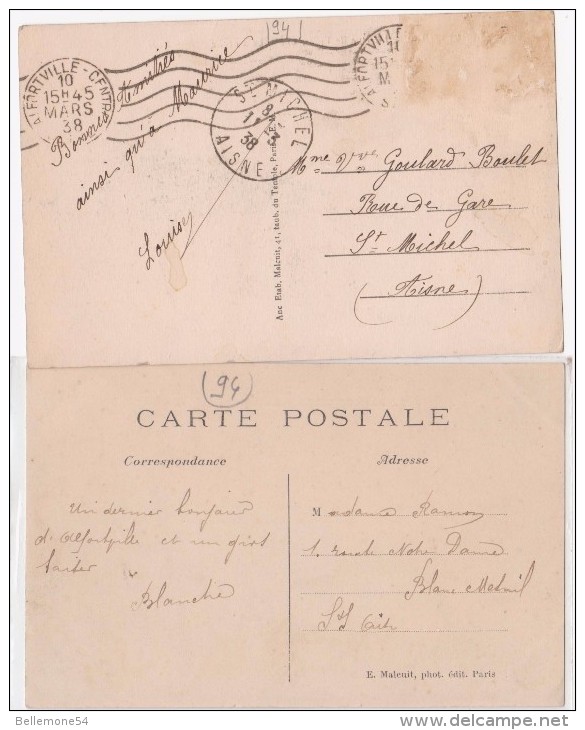 (94)
ALFORTVILLE - CENTRE
10
15H45
MARS
38
Bonnes Amitiés
ainsi qu'à Maurice
Louise
ST MICHEL
AISNE
38
Mme Vve Goulard Boulet
Rue de Gare
St Michel
(Aisne)
Anc Etab. Malcuit, 41, faub. du Temple, Paris
(94)
CARTE POSTALE
Correspondance
Adresse
Un dernier bonjour
d'Alfortville et un gros
baiser
Blanche
Madame Ramon
1. route Notre Dame
Blanc Mesnil
E. Malcuit, phot. édit. Paris
Bellemone54